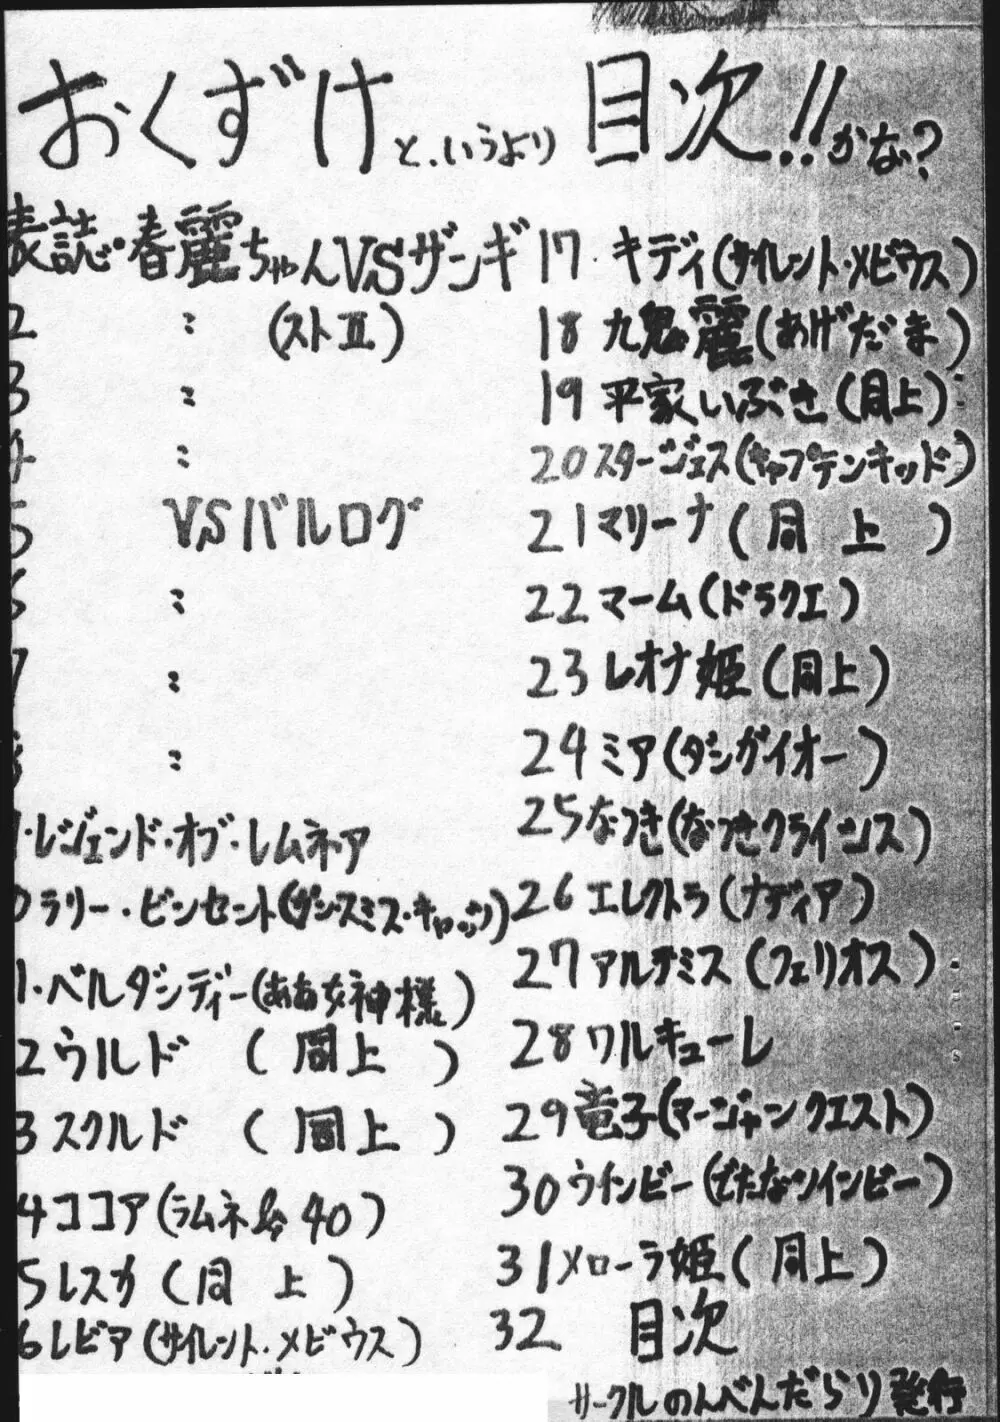 おくずけというより目次!!かな?
表誌・春麗ちゃんVSザンギ
2 〃 (ストⅡ)
3 〃
4 〃
5 VSバルログ
6 〃
7 〃
8 〃
・レジェンド・オブ・レムネア
0ラリー・ビンセント(ガンスミス・キャッツ)
1・ベルダンディー(ああ女神様)
2ウルド (同上)
3スクルド (同上)
4ココア(ラムネ&40)
5レスカ(同上)
6レビア(サイレント・メビウス)
17 キディ(サイレント・メビウス)
18 九鬼麗(あげだま)
19 平家いぶき(同上)
20スタージェス(キャプテンキッド)
21マリーナ(同上)
22マーム(ドラクエ)
23レオナ姫(同上)
24ミア(ダンガイオー)
25なつき(なつきクライシス)
26エレクトラ(ナディア)
27アルテミス(フェリオス)
28ワルキューレ
29竜子(マージャンクエスト)
30ウインビー(でたなツインビー)
31メローラ姫(同上)
32 目次
サークルのんべんだらり発行